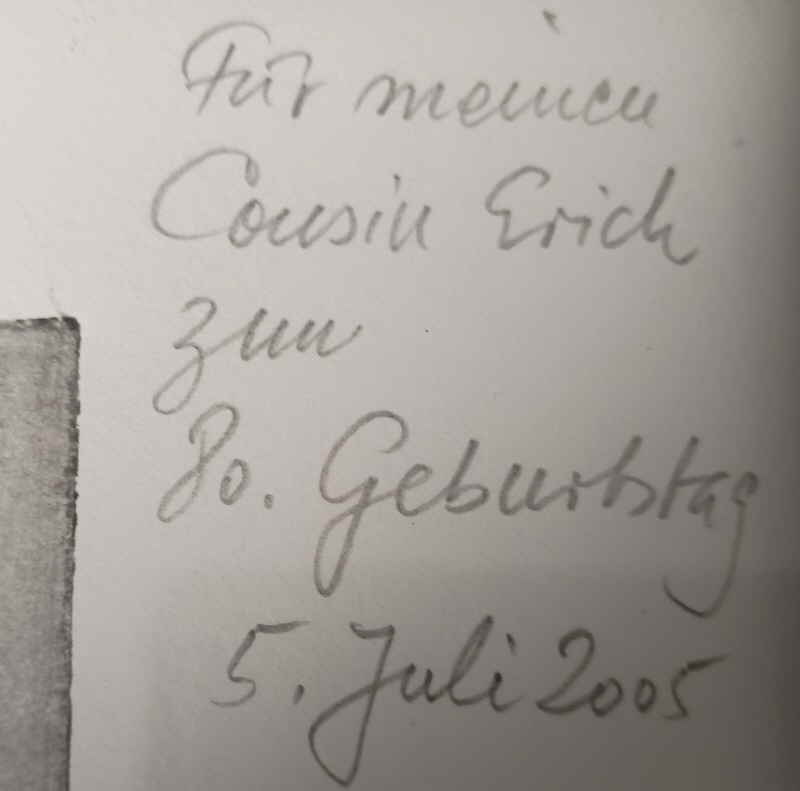 Für meinen
Cousin Erich
zum
80. Geburtstag
5. Juli 2005